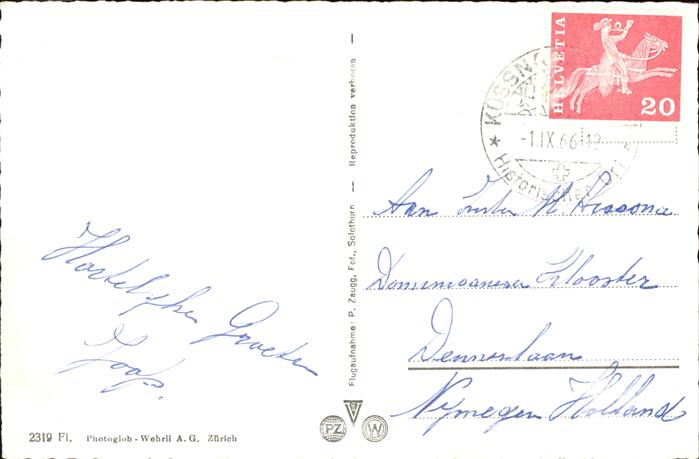 HELVETIA
20
KÜSSNA
-1.IX.66-12
Historischer Ort
Reproduktion verboten
Flugaufnahme: P. Zaugg, Fot., Solothurn
Aan Zuster M.
Dominicanessen Klooster
Dennenlaan
Nymegen Holland
Hartelyke Groeten
Joop.
PZ
W
2319 Fl. Photoglob-Wehrli A.G. Zürich